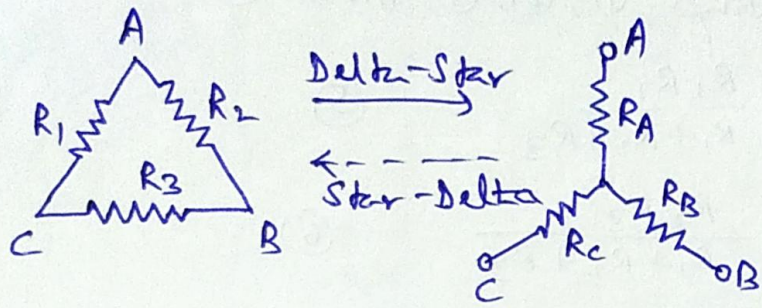 A
R1
R2
R3
C
B
Delta-Star
Star-Delta
A
RA
RB
RC
C
B